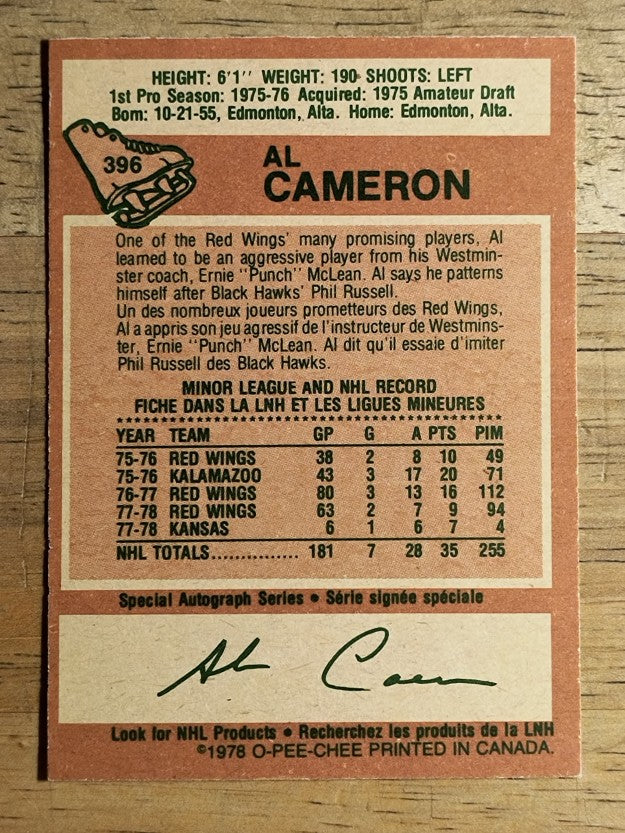 HEIGHT: 6'1'' WEIGHT: 190 SHOOTS: LEFT
1st Pro Season: 1975-76 Acquired: 1975 Amateur Draft
Born: 10-21-55, Edmonton, Alta. Home: Edmonton, Alta.
396
AL
CAMERON
One of the Red Wings' many promising players, Al
learned to be an aggressive player from his Westmin-
ster coach, Ernie "Punch" McLean. Al says he patterns
himself after Black Hawks' Phil Russell.
Un des nombreux joueurs prometteurs des Red Wings,
Al a appris son jeu agressif de l'instructeur de Westmins-
ter, Ernie "Punch" McLean. Al dit qu'il essaie d'imiter
Phil Russell des Black Hawks.
MINOR LEAGUE AND NHL RECORD
FICHE DANS LA LNH ET LES LIGUES MINEURES
YEAR TEAM GP G A PTS PIM
75-76 RED WINGS 38 2 8 10 49
75-76 KALAMAZOO 43 3 17 20 71
76-77 RED WINGS 80 3 13 16 112
77-78 RED WINGS 63 2 7 9 94
77-78 KANSAS 6 1 6 7 4
NHL TOTALS............... 181 7 28 35 255
Special Autograph Series • Série signée spéciale
Al Cameron
Look for NHL Products • Recherchez les produits de la LNH
©1978 O-PEE-CHEE PRINTED IN CANADA.